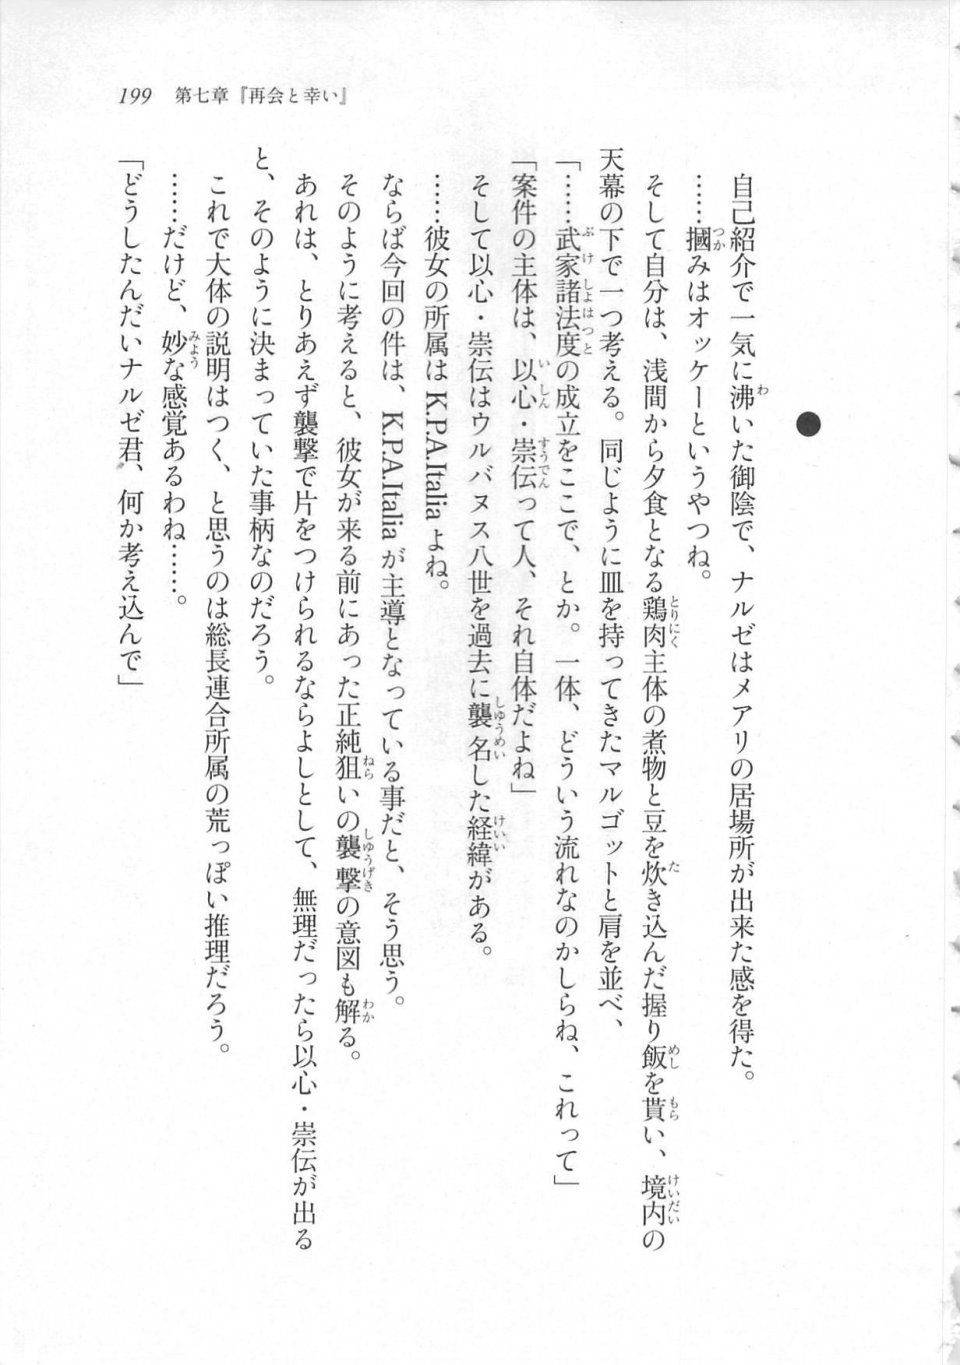 199　第七章『再会と幸い』
●
自己紹介で一気に沸いた御陰で、ナルゼはメアリの居場所が出来た感を得た。
……摑みはオッケーというやつね。
そして自分は、浅間から夕食となる鶏肉主体の煮物と豆を炊き込んだ握り飯を貰い、境内の
天幕の下で一つ考える。同じように皿を持ってきたマルゴットと肩を並べ、
「……武家諸法度の成立をここで、とか。一体、どういう流れなのかしらね、これって」
「案件の主体は、以心・崇伝って人、それ自体だよね」
そして以心・崇伝はウルバヌス八世を過去に襲名した経緯がある。
……彼女の所属は K.P.A.Italia よね。
ならば今回の件は、K.P.A.Italia が主導となっている事だと、そう思う。
そのように考えると、彼女が来る前にあった正純狙いの襲撃の意図も解る。
あれは、とりあえず襲撃で片をつけられるならよしとして、無理だったら以心・崇伝が出る
と、そのように決まっていた事柄なのだろう。
これで大体の説明はつく、と思うのは総長連合所属の荒っぽい推理だろう。
……だけど、妙な感覚あるわね……。
「どうしたんだいナルゼ君、何か考え込んで」